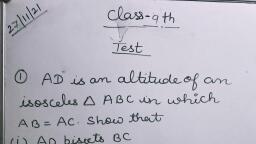 27/11/21
Class-9th
Test
① AD is an altitude of an
isosceles △ ABC in which
AB = AC. Show that
(i) AD bisets BC